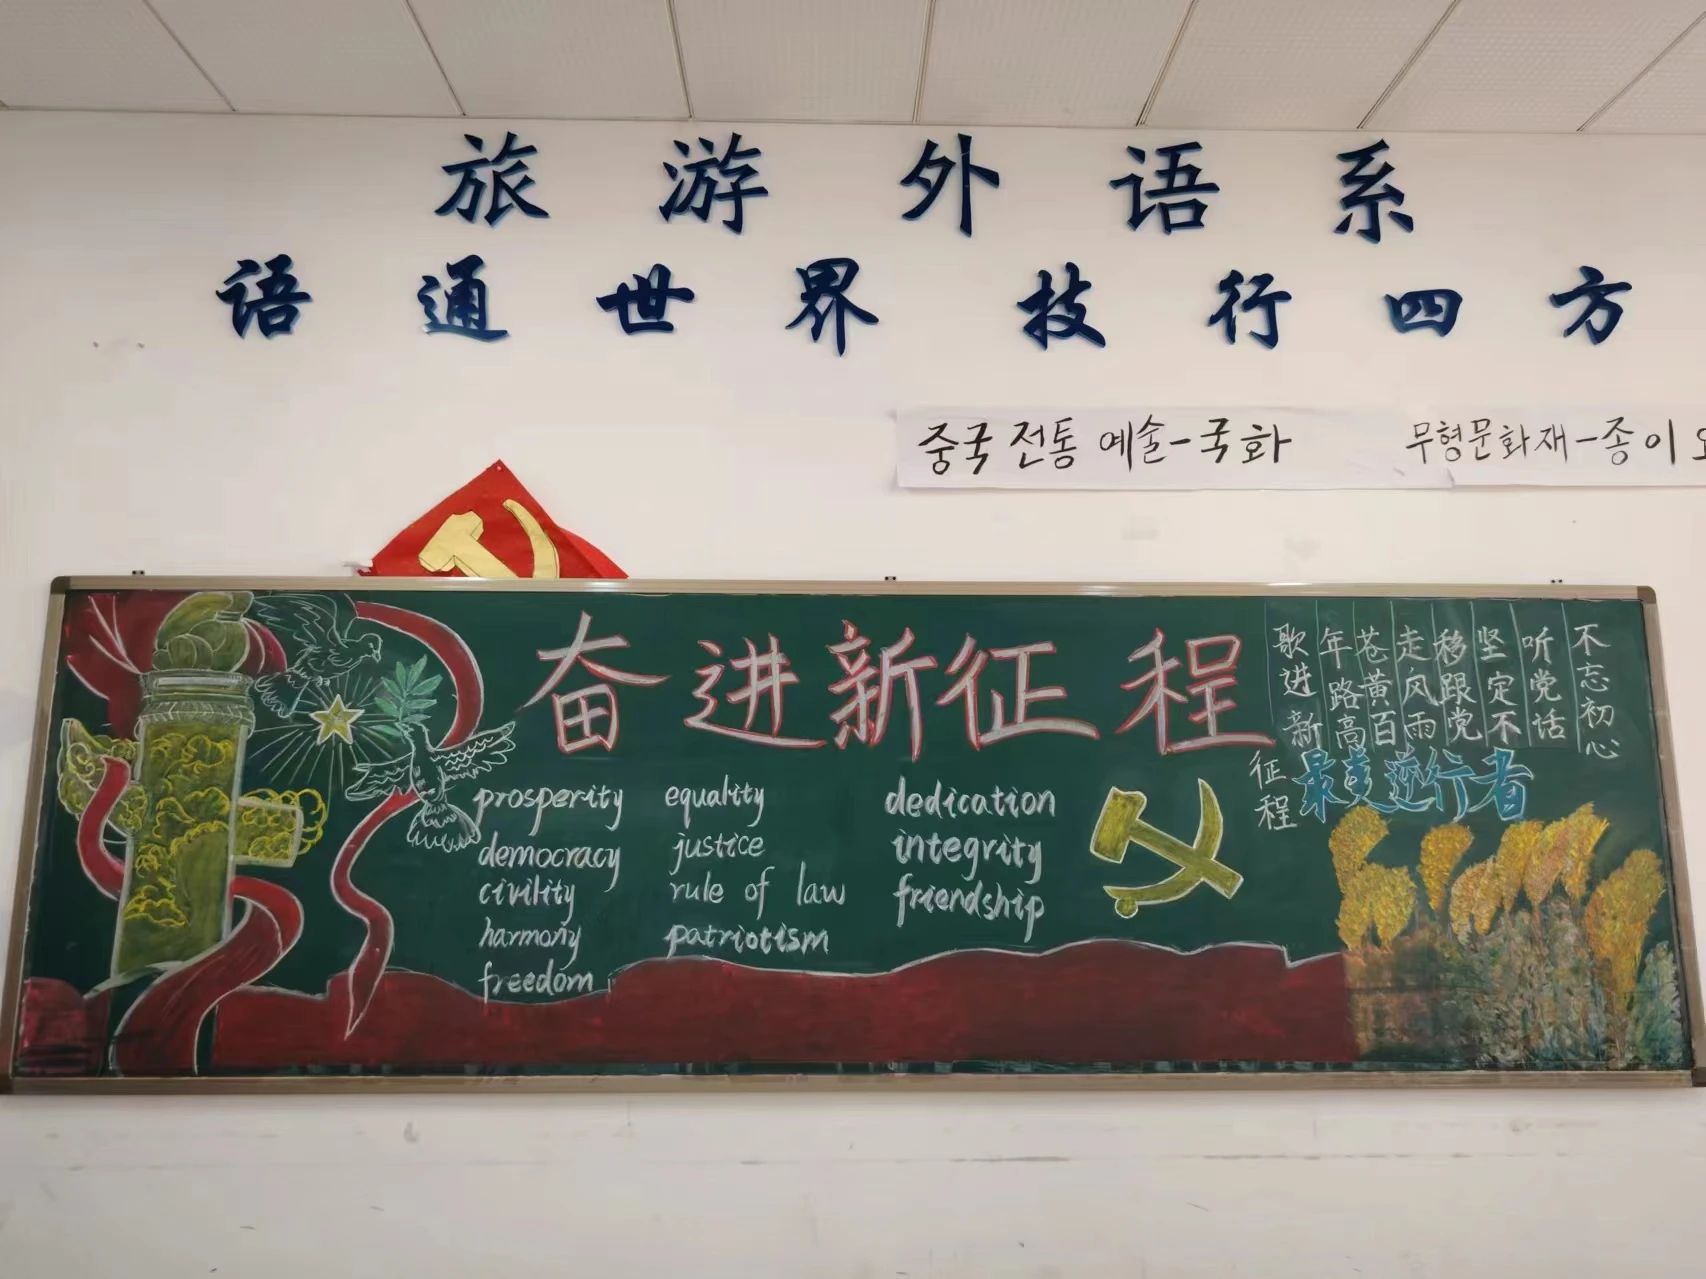 旅游外语系
语通世界 技行四方
중국 전통 예술-국화
무형문화재-종이
奋进新征程
prosperity
democracy
civility
harmony
freedom
equality
justice
rule of law
patriotism
dedication
integrity
friendship
不忘初心
听党话
坚定不
移跟党
走风雨
苍黄百
年路高
歌进新
征程
最美逆行者